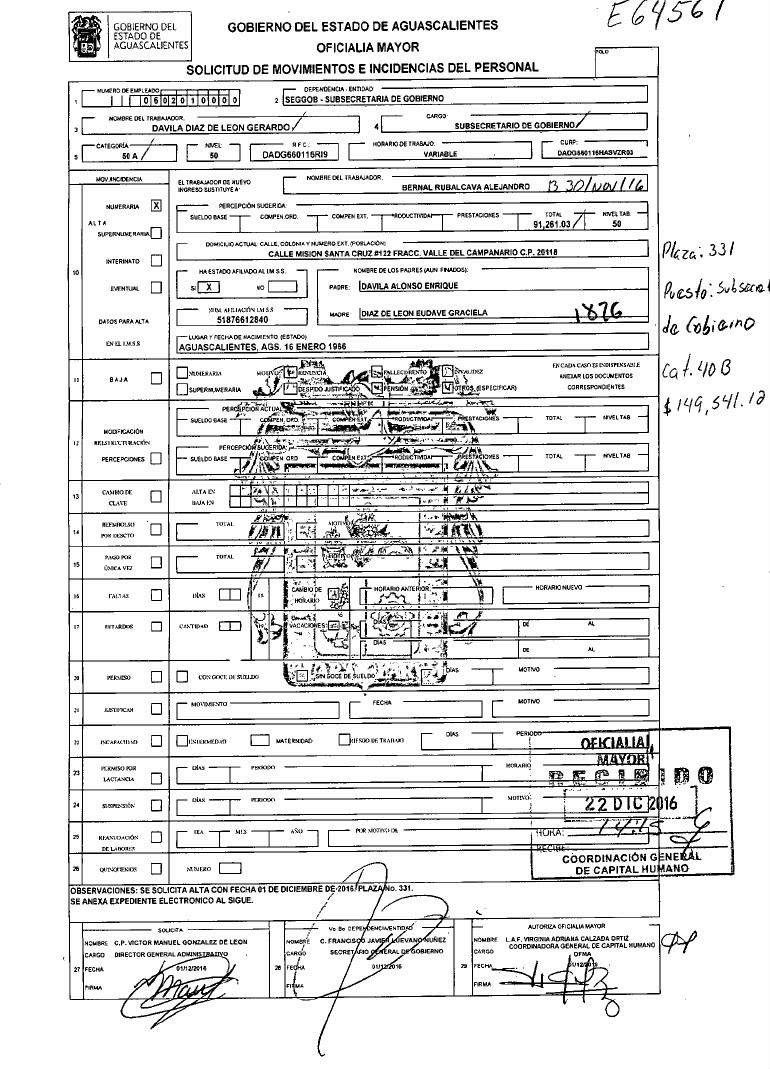 GOBIERNO DEL
ESTADO DE
AGUASCALIENTES
GOBIERNO DEL ESTADO DE AGUASCALIENTES
OFICIALIA MAYOR
SOLICITUD DE MOVIMIENTOS E INCIDENCIAS DEL PERSONAL
E64561
FOLIO
1 NUMERO DE EMPLEADO 0602010000
2 DEPENDENCIA - ENTIDAD SEGGOB - SUBSECRETARIA DE GOBIERNO
3 NOMBRE DEL TRABAJADOR: DAVILA DIAZ DE LEON GERARDO
4 CARGO: SUBSECRETARIO DE GOBIERNO
5 CATEGORÍA 50 A NIVEL: 50 R.F.C.: DADG660116RI9 HORARIO DE TRABAJO: VARIABLE CURP: DADG660116HASVZR03
MOV.INCIDENCIA
EL TRABAJADOR DE NUEVO INGRESO SUSTITUYE A: NOMBRE DEL TRABAJADOR: BERNAL RUBALCAVA ALEJANDRO B 30/NOV/16
NUMERARIA X
PERCEPCIÓN SUGERIDA:
SUELDO BASE COMPEN.ORD. COMPEN EXT. PRODUCTIVIDAD PRESTACIONES TOTAL 91,261.03 NIVEL TAB. 50
ALTA
SUPERNUMERARIA
DOMICILIO ACTUAL CALLE, COLONIA Y NUMERO EXT. (POBLACIÓN)
CALLE MISION SANTA CRUZ #122 FRACC. VALLE DEL CAMPANARIO C.P. 20118
Plaza: 331
10 INTERINATO
HA ESTADO AFILIADO AL I.M.S.S. SI X NO
NOMBRE DE LOS PADRES (AUN FINADOS):
EVENTUAL
PADRE: DAVILA ALONSO ENRIQUE
Puesto: Subsecret
NUM. AFILIACIÓN I.M.S.S 51876612840
MADRE DIAZ DE LEON EUDAVE GRACIELA 1876
de Gobierno
DATOS PARA ALTA
EN EL I.M.S.S
LUGAR Y FECHA DE NACIMIENTO (ESTADO)
AGUASCALIENTES, AGS. 16 ENERO 1966
Cat. 40B
$149,541.12
11 BAJA NUMERARIA MOTIVO: RENUNCIA FALLECIMIENTO INVALIDEZ
SUPERNUMERARIA DESPIDO JUSTIFICADO PENSIÓN OTROS (ESPECIFICAR)
EN CADA CASO ES INDISPENSABLE
ANEXAR LOS DOCUMENTOS
CORRESPONDIENTES
12 MODIFICACIÓN
REESTRUCTURACIÓN
PERCEPCIONES
PERCEPCIÓN ACTUAL
SUELDO BASE COMPEN. ORD. COMPEN EXT. PRODUCTIVIDAD PRESTACIONES TOTAL NIVEL TAB.
PERCEPCIÓN SUGERIDA:
SUELDO BASE COMPEN ORD COMPEN EXT. PRODUCTIVIDAD PRESTACIONES TOTAL NIVEL TAB
13 CAMBIO DE CLAVE ALTA EN
BAJA EN
14 REEMBOLSO POR DESCTO TOTAL MOTIVO
15 PAGO POR ÚNICA VEZ TOTAL
16 FALTAS DÍAS 18 CAMBIO DE HORARIO HORARIO ANTERIOR HORARIO NUEVO
17 RETARDOS CANTIDAD VACACIONES DÍAS DE AL
DÍAS DE AL
20 PERMISO CON GOCE DE SUELDO SIN GOCE DE SUELDO DÍAS MOTIVO
21 JUSTIFICAR MOVIMIENTO FECHA MOTIVO
22 INCAPACIDAD ENFERMEDAD MATERNIDAD RIESGO DE TRABAJO DÍAS PERIODO
23 PERMISO POR LACTANCIA DÍAS PERIODO HORARIO
24 SUSPENSIÓN DÍAS PERIODO MOTIVO
25 REANUDACIÓN DE LABORES DIA MES AÑO POR MOTIVO DE
26 QUINQUENIOS NUMERO
OFICIALIA
MAYOR
RECIBIDO
22 DIC 2016
HORA: 14:15
RECIBE:
COORDINACIÓN GENERAL
DE CAPITAL HUMANO
OBSERVACIONES: SE SOLICITA ALTA CON FECHA 01 DE DICIEMBRE DE 2016 PLAZA No. 331.
SE ANEXA EXPEDIENTE ELECTRONICO AL SIGUE.
SOLICITA
NOMBRE C.P. VICTOR MANUEL GONZALEZ DE LEON
CARGO DIRECTOR GENERAL ADMINISTRATIVO
27 FECHA 01/12/2016
FIRMA
Vo Bo DEPENDENCIA/ENTIDAD
NOMBRE C. FRANCISCO JAVIER LUEVANO NUÑEZ
CARGO SECRETARIO GENERAL DE GOBIERNO
28 FECHA 01/12/2016
FIRMA
AUTORIZA OFICIALIA MAYOR
NOMBRE L.A.F. VIRGINIA ADRIANA CALZADA ORTIZ
CARGO COORDINADORA GENERAL DE CAPITAL HUMANO
OFMA
29 FECHA 01/12/2016
FIRMA